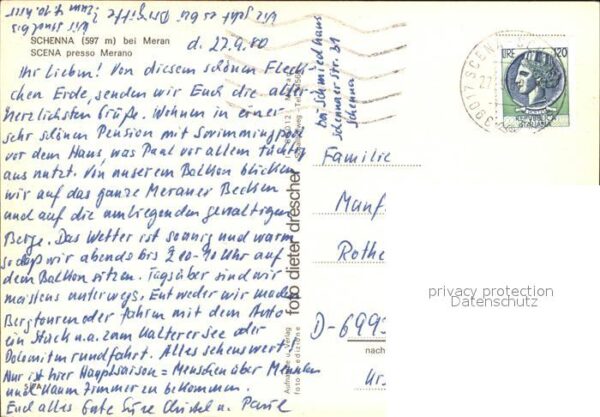 Wir sind bis
zum 4.10. hier
SCHENNA (597 m) bei Meran
SCENA presso Merano
d. 27.9.80
Ihr Lieben! Von diesem schönen Fleck-
chen Erde, senden wir Euch die aller
herzlichsten Grüße. Wohnen in einer
sehr schönen Pension mit Swimmingpool
vor dem Haus, was Paul vor allem tüchtig
aus nutzt. Von unserem Balkon blicken
wir auf das ganze Meraner Becken
und auf die umliegenden gewaltigen
Berge. Das Wetter ist sonnig und warm
so daß wir abends bis 9 Uhr auf
dem Balkon sitzen. Tagsüber sind wir
meistens unterwegs. Entweder wir machen
Bergtouren oder fahren mit dem Auto
ein Stück u.a. zum Kalterer see oder
Dolomitenrundfahrt. Alles sehenswert!
Nur ist hier Hauptsaison = Menschen über Menschen
und kaum Zimmer zu bekommen.
Euch alles Gute Eure Christel u. Paul
bei Schmiedhaus
Schennaer str. 31
Schenna
foto dieter drescher
Aufnahme u. Verlag
foto ed edizione
Familie
Manf
Rothe
D-699
nach
Kr.
39017 SCENA
LIRE 120
REPUBBLICA
ITALIANA
privacy protection
Datenschutz